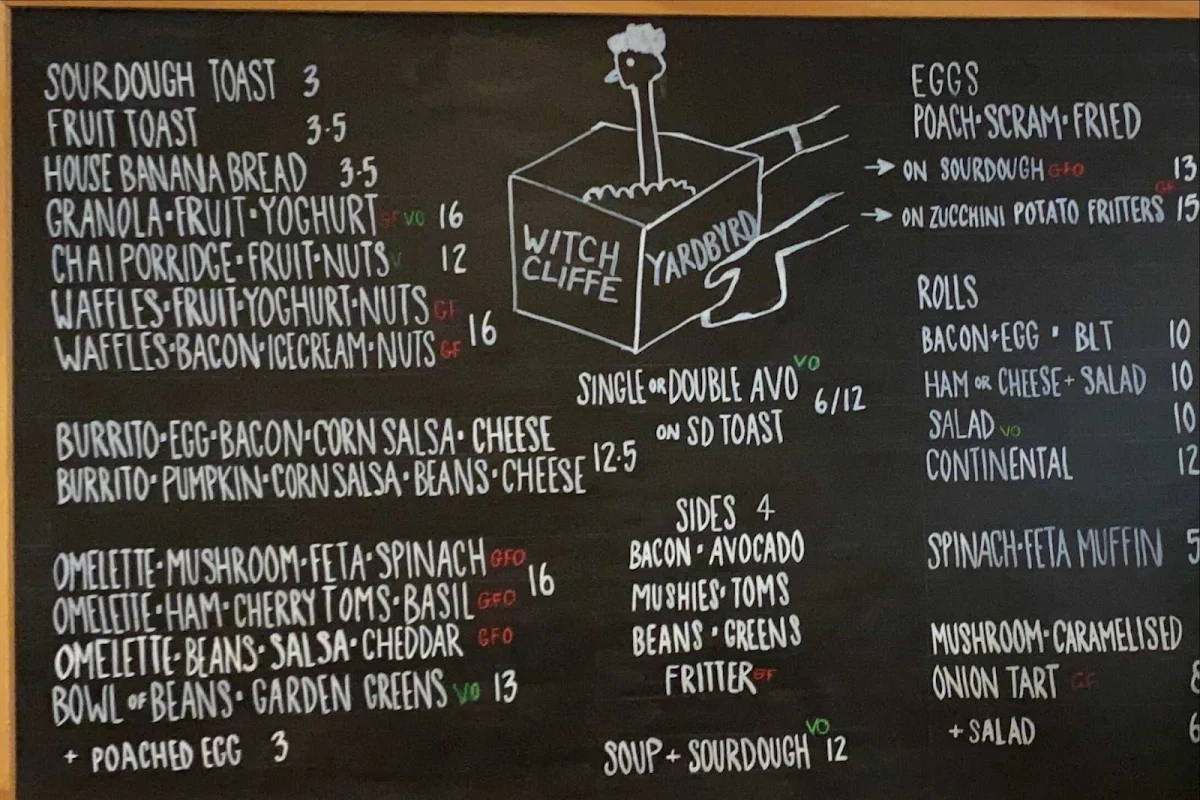 SOURDOUGH TOAST 3
FRUIT TOAST 3.5
HOUSE BANANA BREAD 3.5
GRANOLA·FRUIT·YOGHURT GF VO 16
CHAI PORRIDGE·FRUIT·NUTS V 12
WAFFLES·FRUIT·YOGHURT·NUTS GF
WAFFLES·BACON·ICECREAM·NUTS GF 16
BURRITO·EGG·BACON·CORN SALSA·CHEESE
BURRITO·PUMPKIN·CORN SALSA·BEANS·CHEESE 12.5
OMELETTE·MUSHROOM·FETA·SPINACH GFO
OMELETTE·HAM·CHERRY TOMS·BASIL GFO 16
OMELETTE·BEANS·SALSA·CHEDDAR GFO
BOWL OF BEANS·GARDEN GREENS VO 13
+ POACHED EGG 3
WITCH
CLIFFE
YARDBYRD
SINGLE OR DOUBLE AVO VO 6/12
ON SD TOAST
SIDES 4
BACON·AVOCADO
MUSHIES·TOMS
BEANS·GREENS
FRITTER GF
SOUP + SOURDOUGH VO 12
EGGS
POACH·SCRAM·FRIED
→ ON SOURDOUGH GFO 13
→ ON ZUCCHINI POTATO FRITTERS GF 15
ROLLS
BACON+EGG · BLT 10
HAM OR CHEESE + SALAD 10
SALAD VO 10
CONTINENTAL 12
SPINACH·FETA MUFFIN 5
MUSHROOM·CARAMELISED
ONION TART GF 8
+ SALAD 6